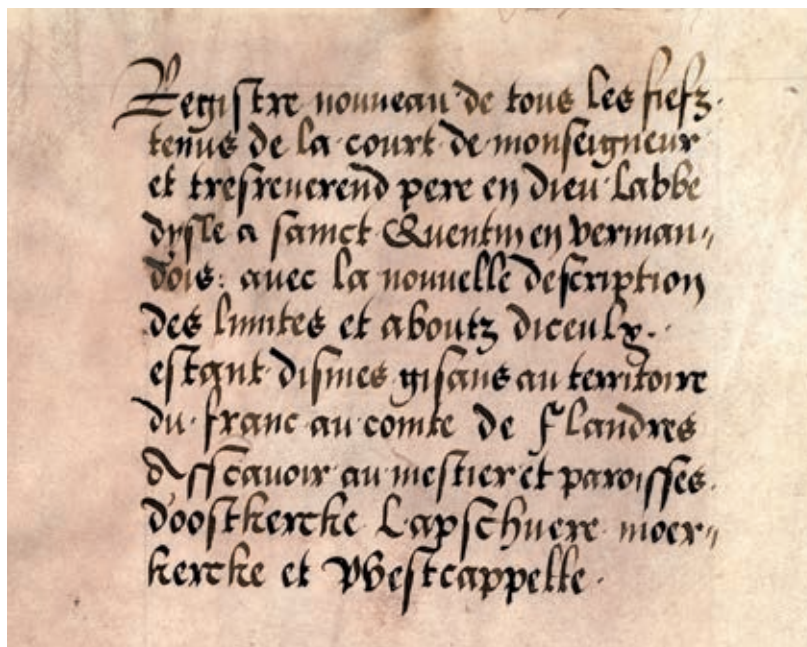 Registre nouveau de tous les fiefz.
tenus de la court de monseigneur
et tresreuerend pere en dieu labbe
dysle a sainct Quentin en verman-
dois: auec la nouuelle description
des limites et aboutz diceulx.
estant dismes gisans au territoire
du franc au comte de Flandres
Asscauoir au mestier et paroisses.
d'oostkercke Lapschuere moer-
kercke et Westcappelle.